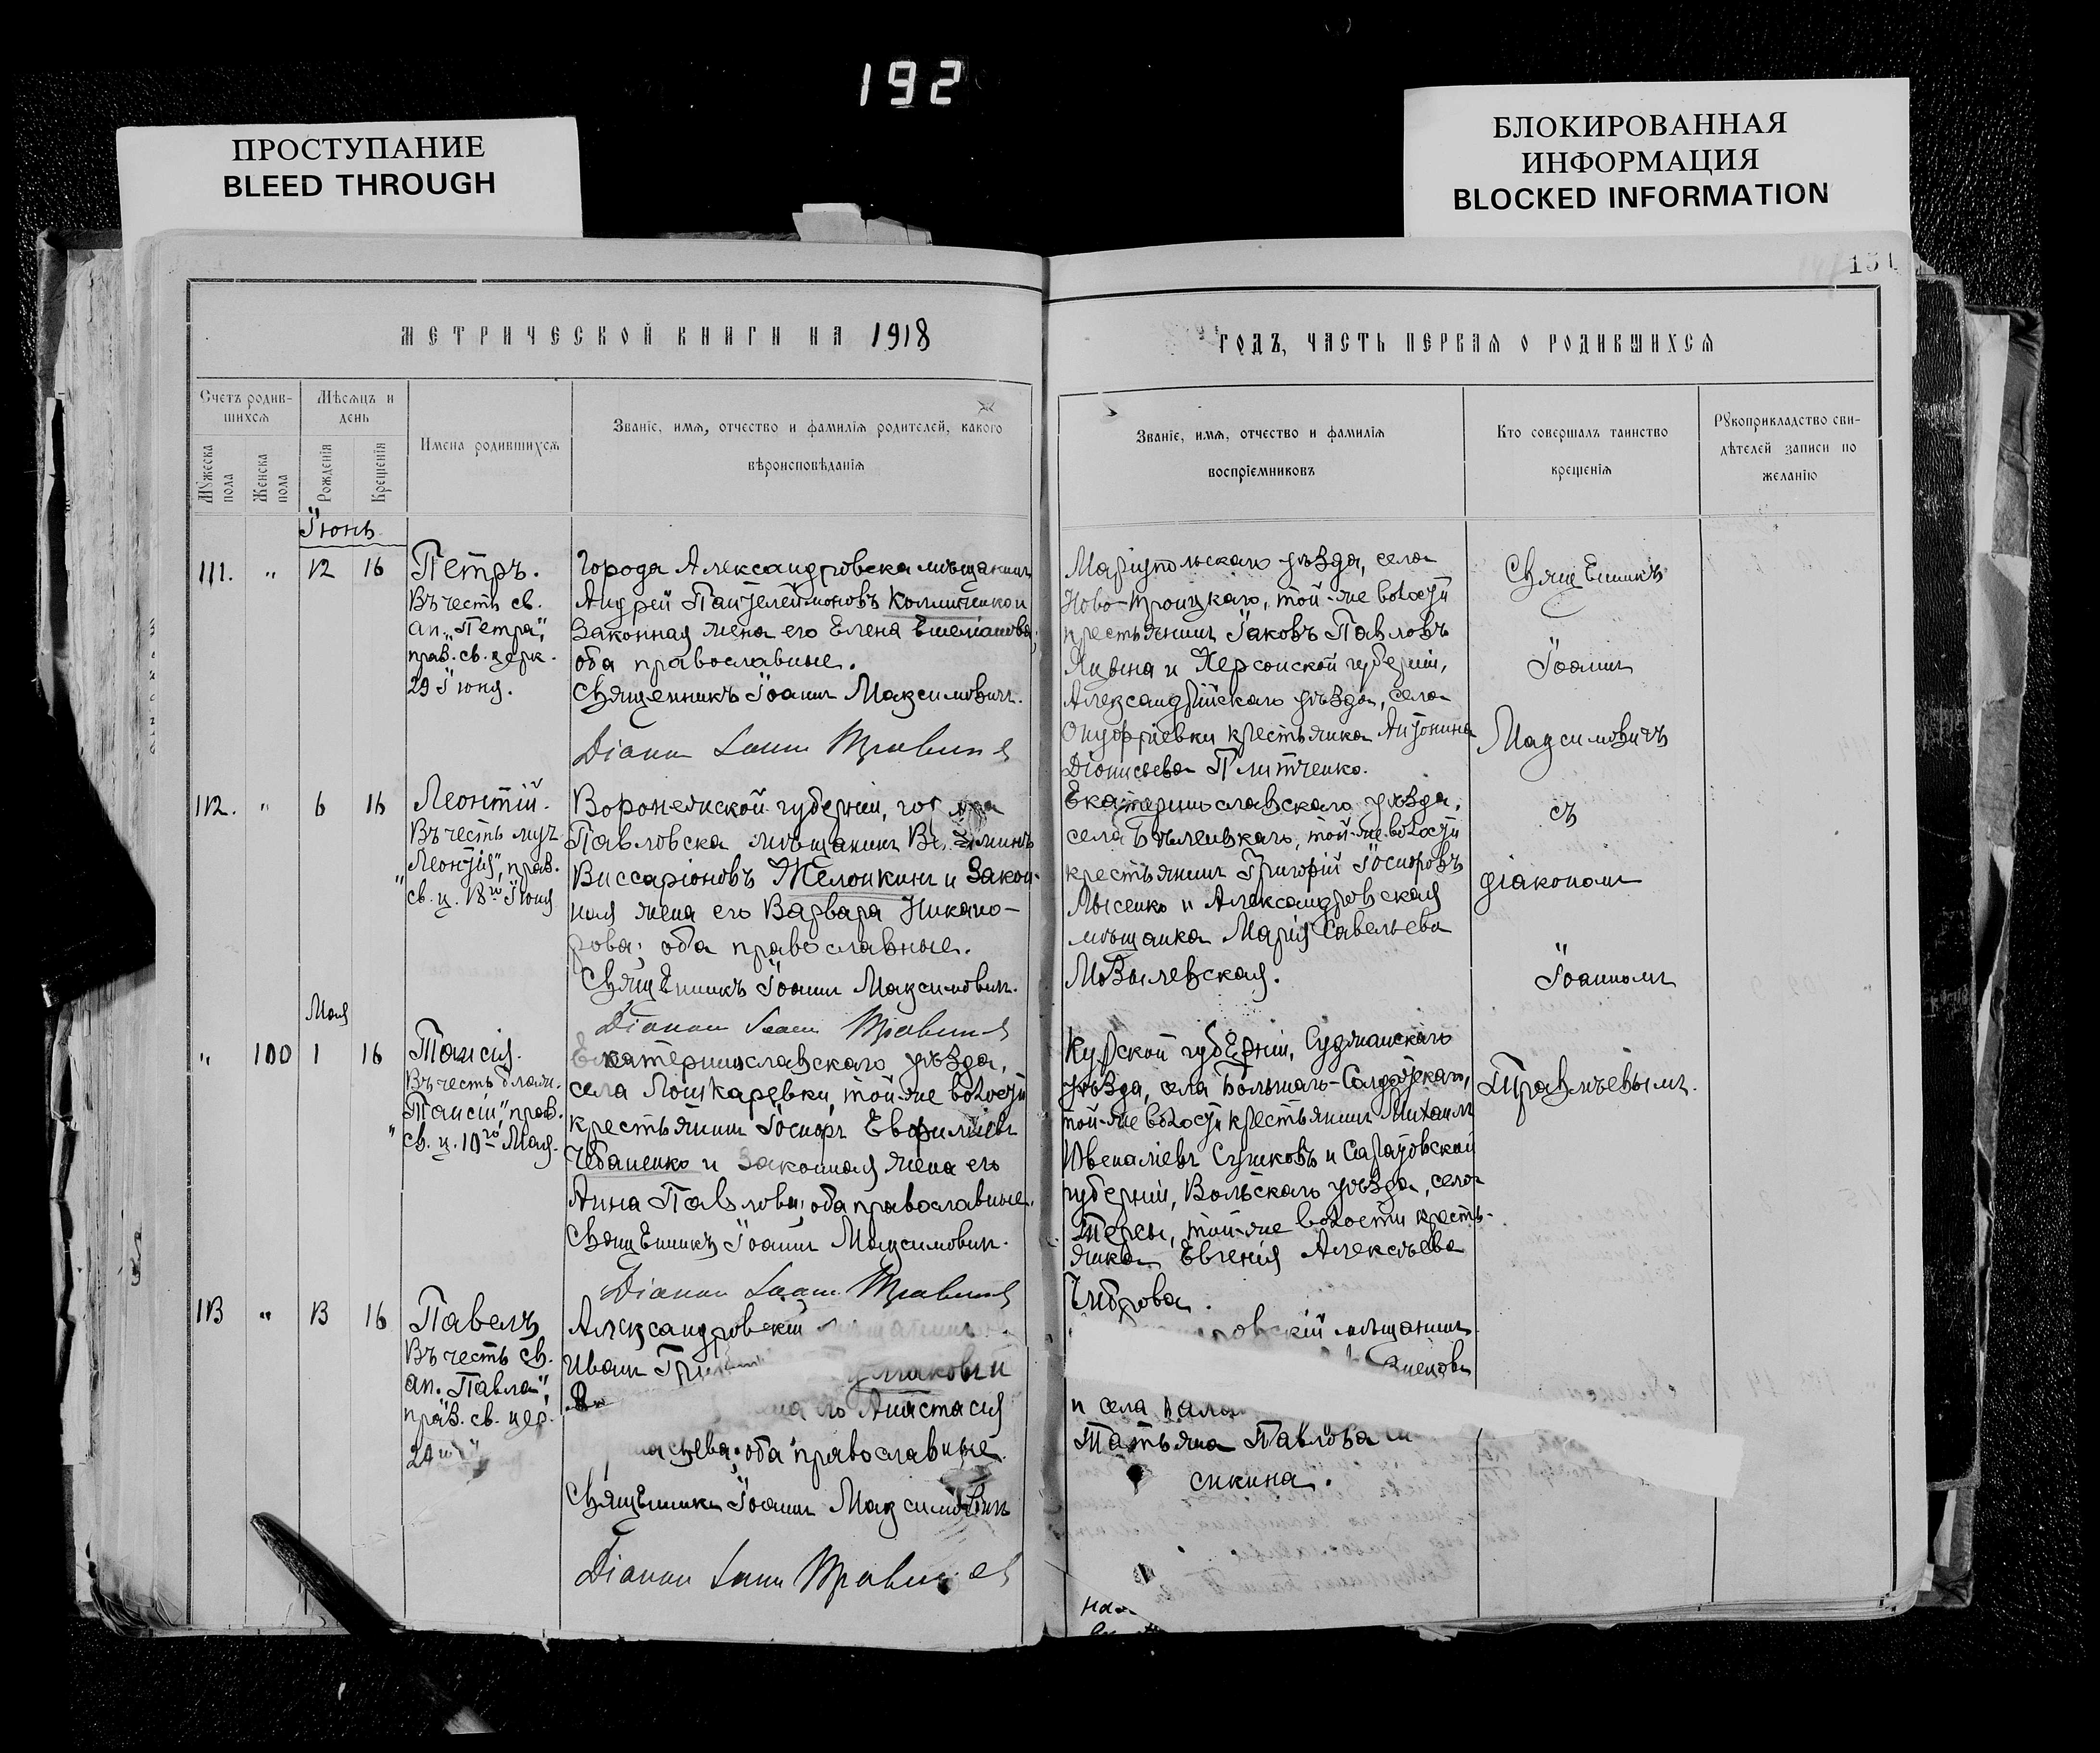 192
ПРОСТУПАНИЕ
BLEED THROUGH
БЛОКИРОВАННАЯ
ИНФОРМАЦИЯ
BLOCKED INFORMATION
151
МЕТРИЧЕСКОЙ КНИГИ НА 1918
Счетъ родив-
шихся
Мѣсяцъ и
день
Мужеска
пола
Женска
пола
Рожденія
Крещенія
Имена родившихся
Званіе, имя, отчество и фамилія родителей, какого
вѣроисповѣданія
Іюнь
111. " 12 16
Петръ.
Въ честь св.
ап. "Петра",
прав. св. церк.
29 Іюня.
Города Александровска мѣщанинъ
Андрей Пантелеймоновъ и
законная жена его Елена
оба православные.
Священникъ Іоаннъ Максимовичъ.
Діаконъ Іоаннъ
112. " 6 16
Леонтій.
Въ честь муч.
"Леонтія", прав.
св. ц. 18го Іюня
Воронежской губерніи,
Павловска мѣщанинъ
Виссаріоновъ Желонкинъ и закон-
ная жена его Варвара Никано-
рова; оба православные.
Священникъ Іоаннъ Максимовичъ.
Діаконъ Іоаннъ
Мая
" 100 1 16
Таисія.
Въ честь блаж.
"Таисіи", прав.
св. ц. 10го Мая.
Екатеринославскаго уѣзда,
села Лошкаревки, той-же волости
крестьянинъ Іосифъ Евфиміевъ
Чебаненко и законная жена его
Анна Павлова; оба православные.
Священникъ Іоаннъ Максимовичъ.
Діаконъ Іоаннъ
113 " 13 16
Павелъ
Въ честь св.
ап. "Павла",
прав. св. цер.
29го
Александровскій мѣщанинъ
Иванъ
его Анастасія
оба православные.
Священникъ Іоаннъ Максимовичъ
Діаконъ Іоаннъ
ГОДЪ, ЧАСТЬ ПЕРВАЯ О РОДИВШИХСЯ
Званіе, имя, отчество и фамилія
воспріемниковъ
Кто совершалъ таинство
крещенія
Рукоприкладство сви-
дѣтелей записи по
желанію
Маріупольскаго уѣзда, села
Ново-Троицкаго, той-же волости
крестьянинъ Іаковъ Павловъ
Яцына и Херсонской губерніи,
Александрійскаго уѣзда, села
Онуфріевки крестьянка Антонина
Діонисьева Плитченко.
Екатеринославскаго уѣзда,
села той-же волости
крестьянинъ Григорій Іосифовъ
Лысенко и Александровская
мѣщанка Марія Савельева
Курской губерніи, Суджанскаго
уѣзда, села Больше-Солдатскаго,
той-же волости крестьянинъ Михаилъ
Ювеналіевъ Сушковъ и Саратовской
губерніи, Вольскаго уѣзда, села
Терсы, той-же волости кресть-
янка Евгенія Алексѣева
Чиброва.
мѣщанинъ
и села
Татьяна Павлова
сикина.
Священникъ
Іоаннъ
Максимовичъ
съ
діакономъ
Іоанномъ